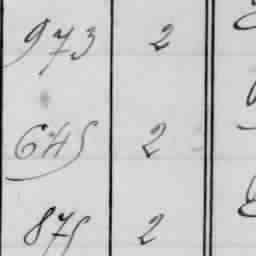 973 2
645 2
875 2